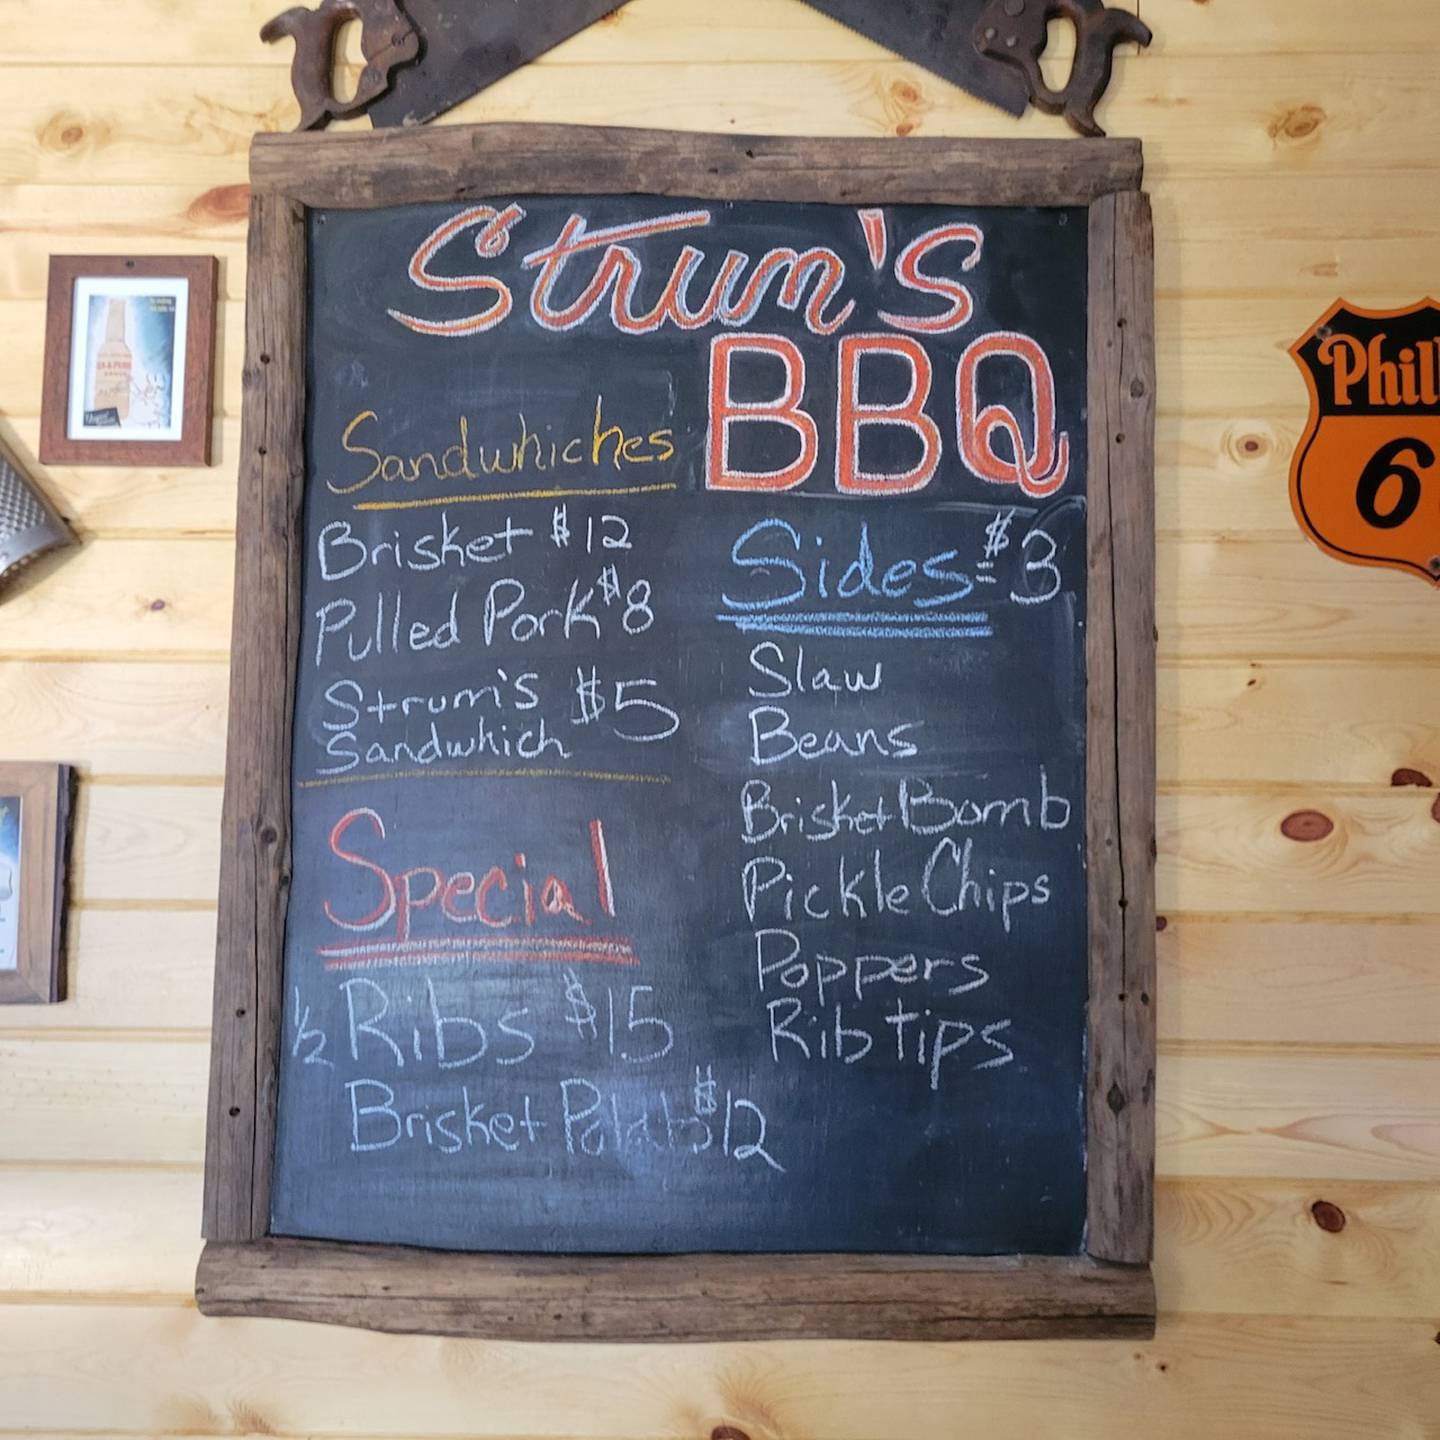 Strum's
BBQ
Sandwhiches
Brisket $12
Pulled Pork $8
Strum's $5
Sandwhich
Special
½ Ribs $15
Brisket Potato $12
Sides - $3
Slaw
Beans
Brisket Bomb
Pickle Chips
Poppers
Rib Tips
Phill
6